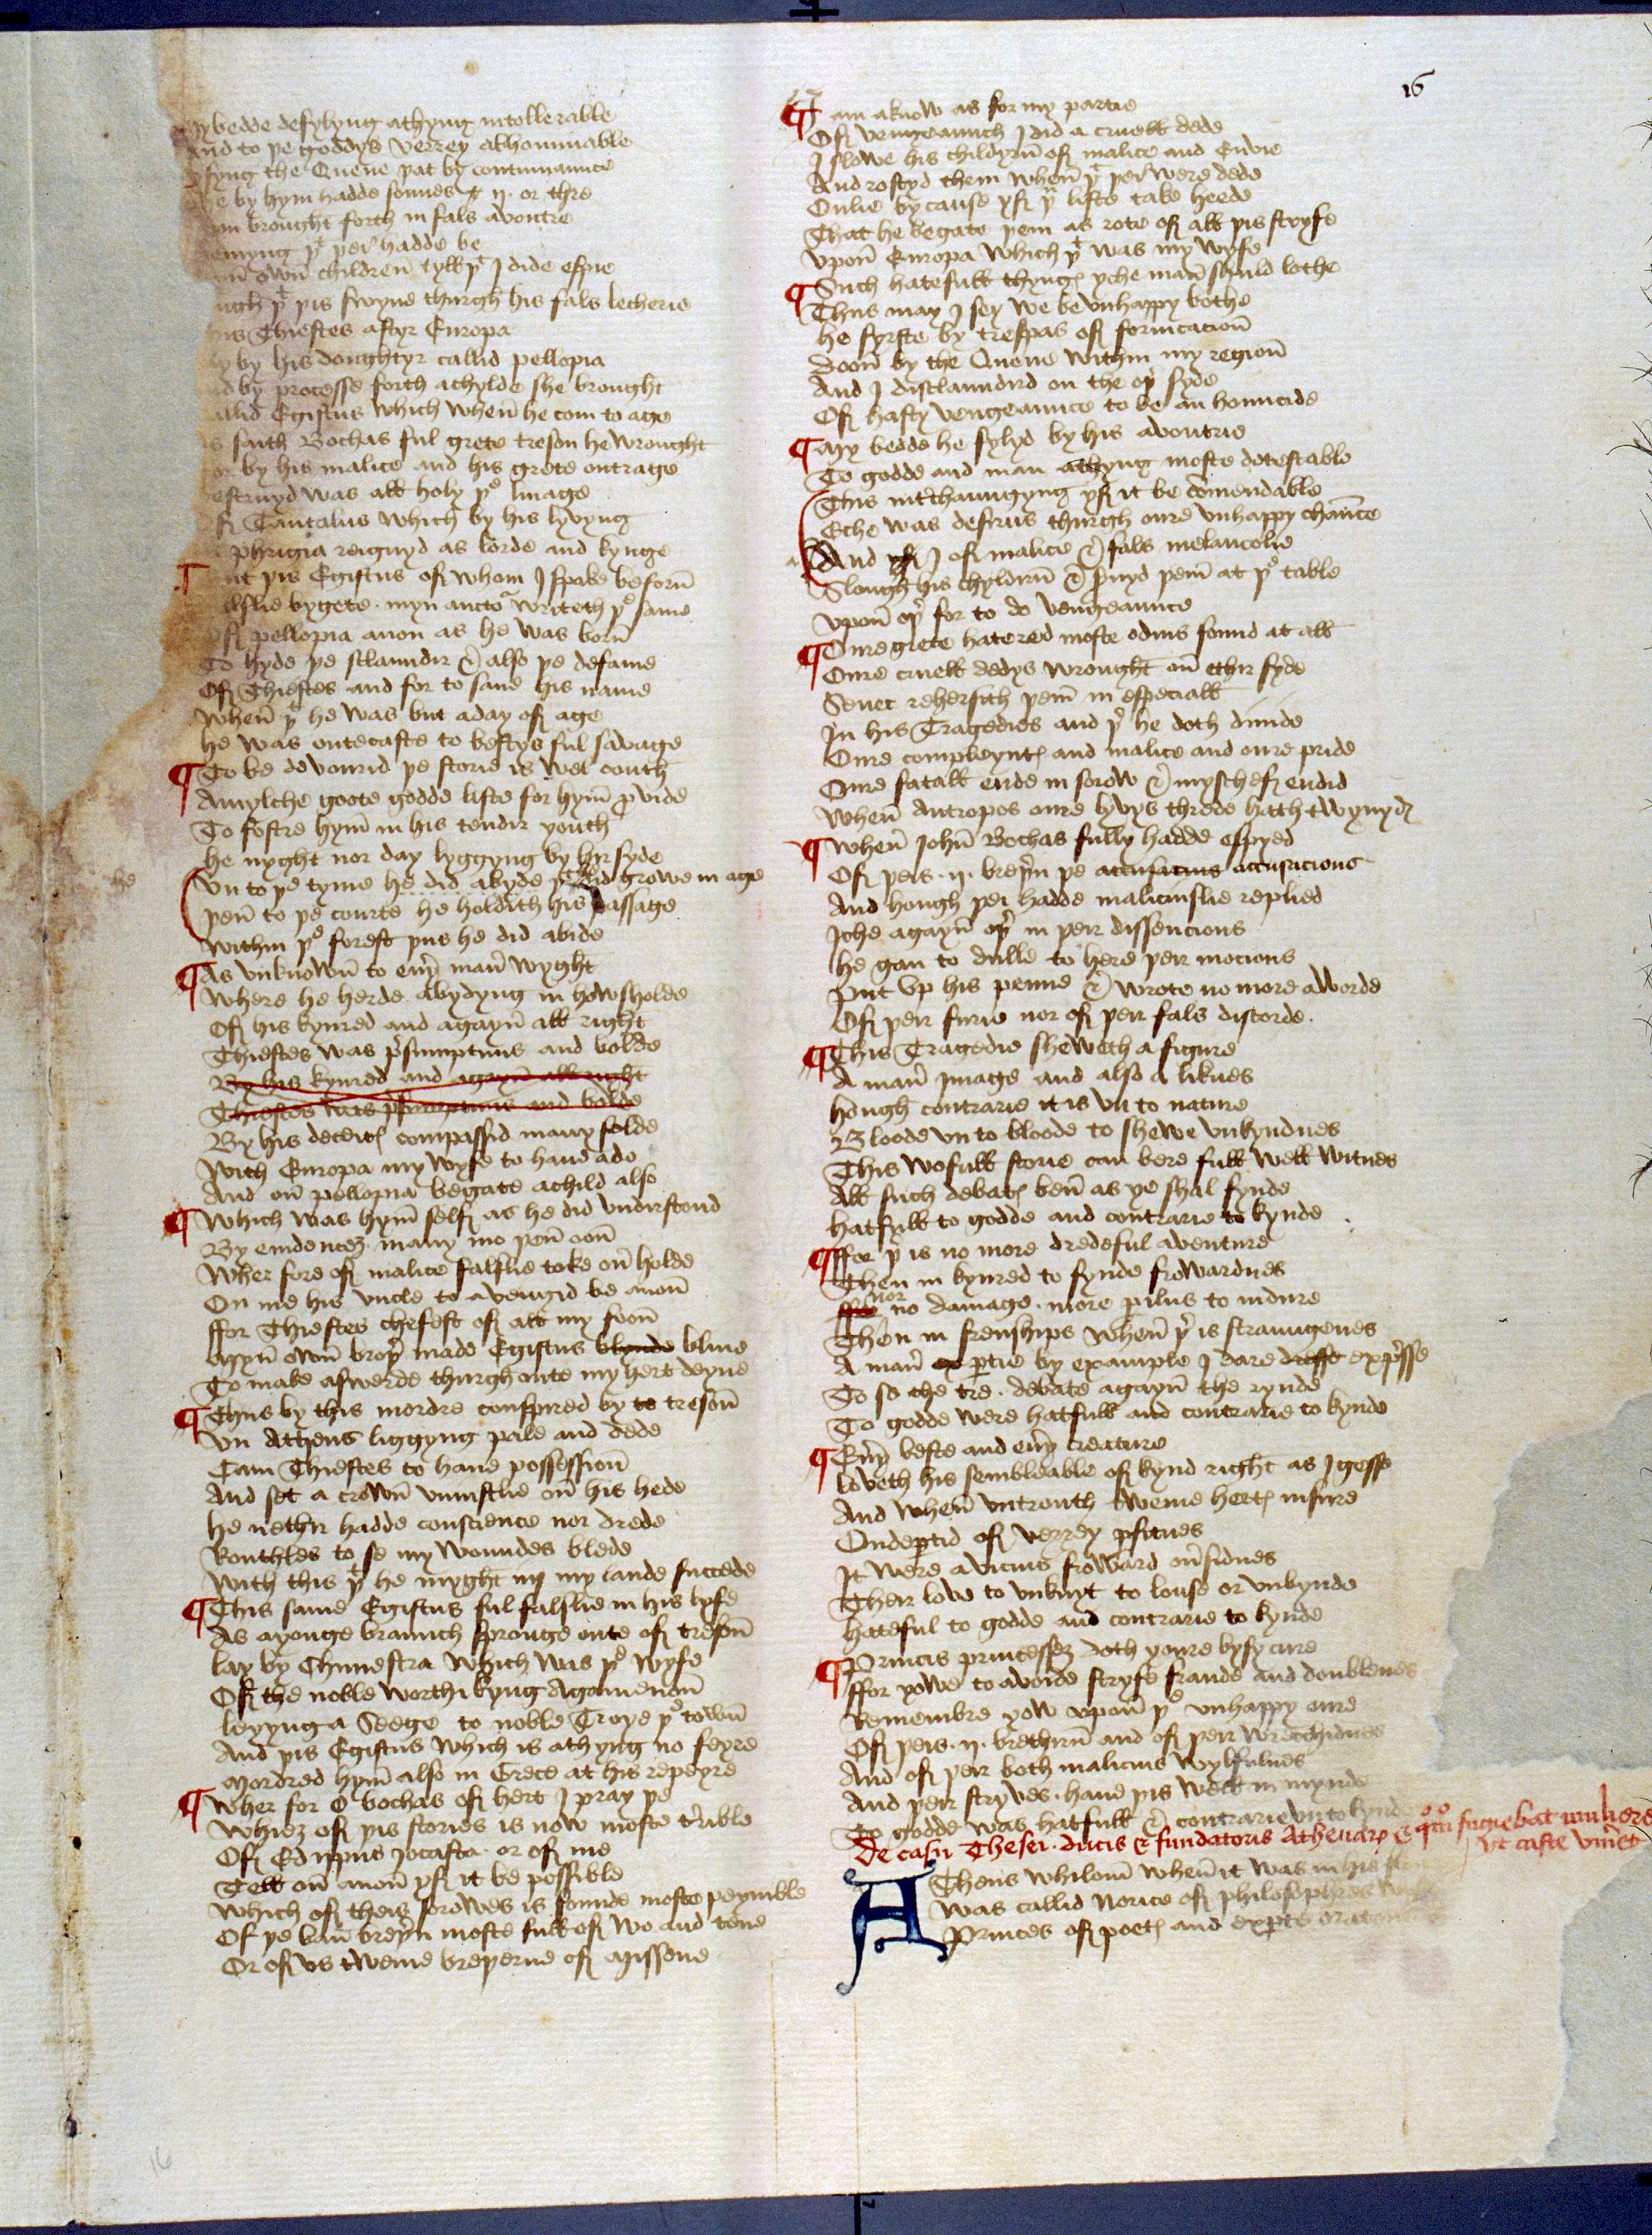 16
bedde defylyng athyng intollerable
And to þe goddys verrey abhominable
the Quene þat by continuaunce
by hym hadde sonnes .ij. or thre
brought forth in fals avoutre
þt þei hadde be
own children tyll þt I dide espie
þt þis swyne thurgh his fals lecherie
Thiestes aftyr Europa
by his doughtyr callid pellopia
by processe forth achylde she brought
Egistus which when he com to age
saith Bochas ful grete treson he wrought
by his malice and his grete outrage
was all holy þe linage
Tantalus which by his lyvyng
phrigia reignyd as lorde and kynge
þis Egistus of whom I spake beforn
bygete . myn auctor writeth þe same
pellopia anon as he was born
To hyde þe sclaundir & also þe defame
Of Thiestes and for to saue his name
When þt he was but aday of age
he was outecaste to bestys ful savage
¶ To be devourid þe storie is wel couth
Amylche goote godde liste for hym provide
To fostre hym in his tendir youth
he nyght nor day lyggyng by hir syde
Vn to þe tyme he did abyde þt did growe in age
he
þen to þe courte he holdith his passage
Within þe forest þus he did abide
¶ As vnknown to euery maner wyght
Where he herde abydyng in howsholde
Of his kynred and agayn all right
Thiestes was presumptuus and bolde
By his kynred and agayn all right
Thiestes was presumptuus and bolde
By his deceites compassid many folde
With Europa my wyfe to haue ado
And on pellopia begate achild also
¶ Which was hym self as he did vndirstond
By euidencez many mo þen oon
Wher fore of malice falslie toke on holde
On me his vncle to avengid be anon
ffor Thiestes chefest of all my foon
Myn own broþer made Egistus blynde bliue
To make aswerde thurgh oute my hert dryue
¶ Thus by this mordre conspired by to treson
Vn Athens liggyng pale and dede
Cam Thiestes to haue possession
And set a crown vniustlie on his hede
he nethir hadde conscience nor drede
Routhles to se my woundes blede
With this þt he myght in my lande succede
¶ This same Egistus ful falslie in his lyfe
As ayonge braunch spronge oute of treson
lay by Clunestra which was þe wyfe
Of the noble worthi kyng Agamenon
leyyng a Seege to noble Troye þe town
And þis Egistus which is athyng no feyre
Mordred hym also in Grece at his repeyre
¶ Wher for O bochas of hert I pray þe
Whiez of þis stories is now moste terible
Of Edippus Iocasta . or of me
Tell on anon yf it be possible
Which of theis sorowes is founde moste peynible
Of þe ban breþern moste full of wo and tene
Or of vs tweine breþerne of Missene
¶ I am aknow as for my partie
Of vengeaunch I did a cruell dede
I slowe his childyrn of malice and Envie
And rostyd them when þt þei were dede
Onlie by cause yf ye liste take heede
That he begate þem as rote of all þis stryfe
Vpon Europa which þt was my wyfe
Such hatefull thynges yche man shuld lothe
¶ Thus may I sey we be vnhappy bothe
he fyrste by trespas of fornicacion
Doon by the Quene within my region
And I disclaundird on the oþer syde
Of hasty vengeaunce to be an homicide
¶ My bedde he fylyd by his avoutrie
To godde and man athyng moste detestable
This interchaungyng yf it be comendable
Eche was desirus thurgh oure vnhappy chaunce
And yf I of malice & fals melancolie
Slough his chyldirn & seruyd þem at þe table
Vpon oþer for to do vengeaunce
¶ Oure grete hatered moste odius found at all
Oure cruell dedys wrought on ethir syde
Senec rehersith þem in especiall
In his Tragedies and þer he doth diuide
Oure compleyntes and malice and oure pride
Oure fatall ende in sorow & myschef endid
When Antropos oure lyvys threde hath twynyd
¶ When John Bochas fully hadde espyed
Of þeis .ij. breþern þe accusacions accusacions
And hough þei hadde maliciuslie replied
Iche agayn oþer in þeir dissencions
he gan to dulle to here þeir mocions
Put vp his penne & wrote no more aworde
Of þeir furie nor of þeir fals discorde .
¶ This Tragedie sheweth a figure
A maner ymage and also a liknes
hough contrarie it is vn to nature
Bloode vn to bloode to shewe vnkyndnes
This wofull storie can bere full well witnes
All such debates ben as ye shal fynde
hatfull to godde and contrarie to kynde
¶ ffor þer is no more dredeful aventure
Then in kynred to fynde frowardnes
nor
no damage . more pilus to indure
Then in frenships when þer is straungenes
A maner partie by example I dare expresse
To se the tre . debate agayn the rynde
To godde were hatfull and contrarie to kynde
¶ Euery beste and euery creature
loveth his sembleable of kynd right as I gesse
And when vntrouth tweine hertes insure
Ondepartid of verrey parfitnes
It were a vicius froward onsidnes
Their love to vnknyt to louse or vnbynde
hateful to godde and contrarie to kynde
¶ Princis princessez doth youre bysy cure
ffor yowe to avoide stryfe fraude and doublenes
Remembre yow vpon þe vnhappy eure
Of þeis .ij. brethirn and of þeir wrecchidnes
And of þeir both malicius wylfulnes
And þeir stryves . haue þis well in mynde
To godde was hatfull & contrarie vnto kynde
De casu Thesei . ducis & fundatoris Athenarum & quomodo fugiebat muliores
vt caste viueret
AThens whilom when it was in his
Was callid Norice of philosophres
Princes of poetes and experte
16